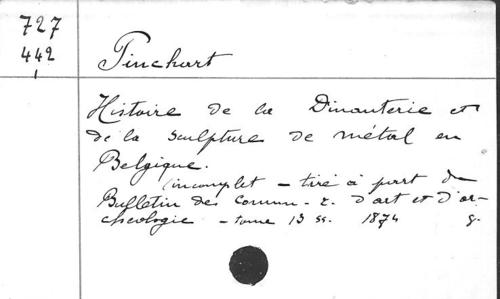 727
442
Pinchart
Histoire de la Dinanterie et
de la sculpture de métal en
Belgique.
(incomplet - tiré à part du
Bulletin des Comm. r. d'art et d'ar-
chéologie - tome 13 ss. 1874 g.